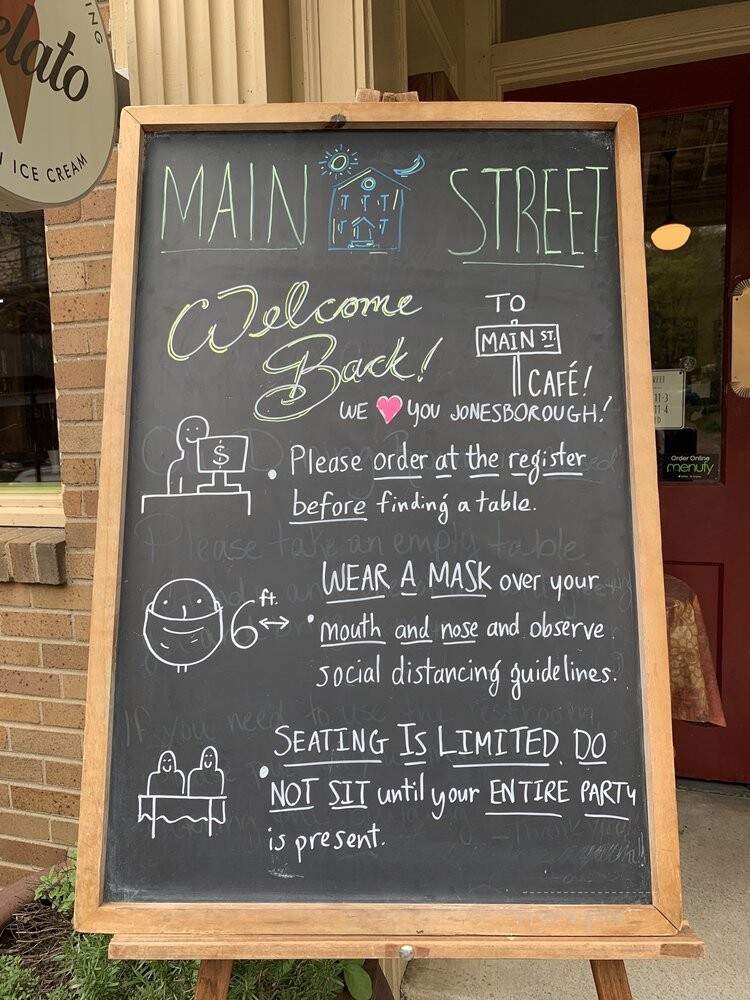 elato
ICE CREAM
MAIN STREET
Welcome
Back!
TO
MAIN ST.
CAFÉ!
WE ❤ YOU JONESBOROUGH!
$
• Please order at the register
before finding a table.
Please take an empty table
6 ft.
WEAR A MASK over your
• mouth and nose and observe
social distancing guidelines.
If you need to use
• SEATING IS LIMITED. DO
NOT SIT until your ENTIRE PARTY
is present.
Order Online
menufy